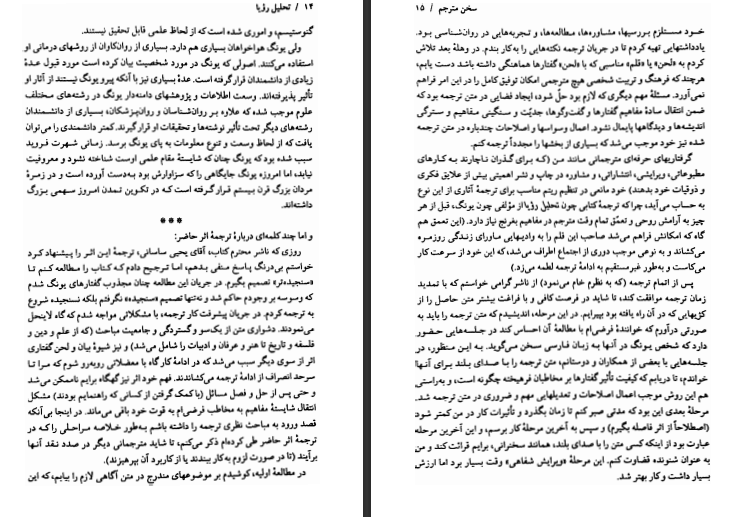 ۱۴ / تحلیل رؤیا
گنوستیسم، و اموری شده است که از لحاظ علمی قابل تحقیق نیستند.
ولی یونگ هواخواهان بسیاری هم دارد. بسیاری از روان‌کاوان از روشهای درمانی او
استفاده می‌کنند. اصولی که یونگ در مورد شخصیت بیان کرده است مورد قبول عدهٔ
زیادی از دانشمندان قرار گرفته است. عدهٔ بسیاری نیز با آنکه پیرو یونگ نیستند از آثار او
تأثیر پذیرفته‌اند. وسعت اطلاعات و پژوهشهای دامنه‌دار یونگ در رشته‌های مختلف
علوم موجب شده که علاوه بر روان‌شناسان و روان‌پزشکان، بسیاری از دانشمندان
رشته‌های دیگر تحت تأثیر نوشته‌ها و تحقیقات او قرار گیرند. کمتر دانشمندی را می‌توان
یافت که از لحاظ وسعت و تنوع معلومات به پای یونگ برسد. زمانی شهرت فروید
سبب شده بود که یونگ چنان که شایستهٔ مقام علمی اوست شناخته نشود و معروفیت
نیابد، اما امروزه یونگ جایگاهی را که سزاوارش بود به‌دست آورده است و در زمرهٔ
مردان بزرگ قرن بیستم قرار گرفته است که در تکوین تمدن امروز سهمی بزرگ
داشته‌اند.
***
و اما چند کلمه‌ای دربارهٔ ترجمهٔ اثر حاضر:
روزی که ناشر محترم کتاب، آقای یحیی ساسانی، ترجمهٔ این اثر را پیشنهاد کرد
خواستم بی‌درنگ پاسخ منفی بدهم، اما ترجیح دادم که کتاب را مطالعه کنم تا
«سنجیده‌تر» تصمیم بگیرم. در جریان این مطالعه چنان مجذوب گفتارهای یونگ شدم
که وسوسه بر وجودم حاکم شد و نه‌تنها تصمیم «سنجیده» نگرفتم بلکه نسنجیده شروع
به ترجمه کردم. در جریان پیشرفت کار ترجمه، با مشکلاتی مواجه شدم که گاه لاینحل
می‌نمودند. دشواری متن از یک‌سو و گستردگی و جامعیت مباحث (که از علم و دین و
فلسفه و تاریخ تا هنر و عرفان و ادبیات را شامل می‌شد) و نیز شیوهٔ بیان و لحن گفتاری
اثر از سوی دیگر سبب می‌شد که در ادامهٔ کار گاه با معضلاتی روبه‌رو شوم که مرا تا
سرحد انصراف از ادامهٔ ترجمه می‌کشاندند. فهم خود اثر نیز گهگاه برایم ناممکن می‌شد
و حتی پس از حل و فصل مسائل (با کمک گرفتن از کسانی که راهنمایم بودند) مشکل
انتقال شایستهٔ مفاهیم به مخاطب فرضی‌ام به قوت خود باقی می‌ماند. در اینجا بی‌آنکه
قصد ورود به مباحث نظری ترجمه را داشته باشم به‌طور خلاصه مراحلی را که در
ترجمهٔ اثر حاضر طی کرده‌ام ذکر می‌کنم، تا شاید مترجمانی دیگر در صدد نقد آنها
برآیند (تا در صورت لزوم به‌کار ببندند یا از کاربرد آن بپرهیزند).
در مطالعهٔ اولیه، کوشیدم بر موضوعهای مندرج در متن آگاهی لازم را بیابم، که این
سخن مترجم / ۱۵
خود مستلزم بررسیها، مشاوره‌ها، مطالعه‌ها، و تجربه‌هایی در روان‌شناسی بود.
یادداشتهایی تهیه کردم تا در جریان ترجمه نکته‌هایی را به‌کار بندم. در وهلهٔ بعد تلاش
کردم به «لحن» یا «قلم» مناسبی که با «لحن» گفتارها هماهنگی داشته باشد دست یابم،
هرچند که فرهنگ و تربیت شخصی هیچ مترجمی امکان توفیق کامل را در این امر فراهم
نمی‌آورد. مسئلهٔ مهم دیگری که لازم بود حل شود، ایجاد فضایی در متن ترجمه بود که
ضمن انتقال سادهٔ مفاهیم گفتارها و گفت‌وگوها، جدیّت و سنگینی مفاهیم و سترگی
اندیشه‌ها و دیدگاهها پایمال نشود. اعمال وسواسها و اصلاحات چندباره در متن ترجمه
شده نیز خود موجب می‌شد که بسیاری از بخشها را مجدداً ترجمه کنم.
گرفتاریهای حرفه‌ای مترجمانی مانند من (که برای گذران ناچارند به کارهای
مطبوعاتی، ویرایشی، انتشاراتی، و مشاوره در چاپ و نشر اهمیتی بیش از علایق فکری
و ذوقیات خود بدهند) خود مانعی در تنظیم ریتم مناسب برای ترجمهٔ آثاری از این نوع
به حساب می‌آید، چرا که ترجمهٔ کتابی چون تحلیل رؤیا از مؤلفی چون یونگ، قبل از هر
چیز به آرامش روحی و تعمّق تمام وقت مترجم در مفاهیم بغرنج نیاز دارد. (این تعمق هم
گاه که امکانش فراهم می‌شد صاحب این قلم را به وادیهایی ماورای زندگی روزمره
می‌کشاند و به نوعی موجب دوری از اجتماع اطراف می‌شد، که این خود از سرعت کار
می‌کاست و به‌طور غیرمستقیم به ادامهٔ ترجمه لطمه می‌زد.)
پس از اتمام ترجمه (که به نظرم خام می‌نمود) از ناشر گرامی خواستم که با تمدید
زمان ترجمه موافقت کند، تا شاید در فرصت کافی و با فراغت بیشتر متن حاصل را از
کژیهایی که در آن راه یافته بود بپیرایم. در این مرحله، اندیشیدم که متن ترجمه را باید به
صورتی درآورم که خوانندهٔ فرضی‌ام با مطالعهٔ آن احساس کند در جلسه‌هایی حضور
دارد که شخص یونگ در آنها به زبان فارسی سخن می‌گوید. به این منظور، در
جلسه‌هایی با بعضی از همکاران و دوستانم، متن ترجمه را با صدای بلند برای آنها
خواندم، تا دریابم که کیفیت تأثیر گفتارها بر مخاطبان فرهیخته چگونه است، و به‌راستی
هم این روش موجب اعمال اصلاحات و تعدیلهایی مهم و ضروری در متن ترجمه شد.
مرحلهٔ بعدی این بود که مدتی صبر کنم تا زمان بگذرد و تأثیرات کار در من کمتر شود
(اصطلاحاً از اثر فاصله بگیرم) و سپس به آخرین مرحلهٔ کار برسم، و این آخرین مرحله
عبارت بود از اینکه کسی متن را با صدای بلند، همانند سخنرانی، برایم قرائت کند و من
به عنوان شنونده قضاوت کنم. این مرحلهٔ «ویرایش شفاهی» وقت بسیار برد اما ارزش
بسیار داشت و کار بهتر شد.